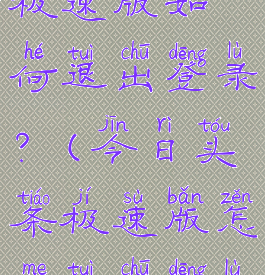 极速版如
hé tuì chū dēng lù
何退出登录
jīn rì tóu
？（今日头
tiáo jí sù bǎn zěn
条极速版怎
me tuì chū dēng lù